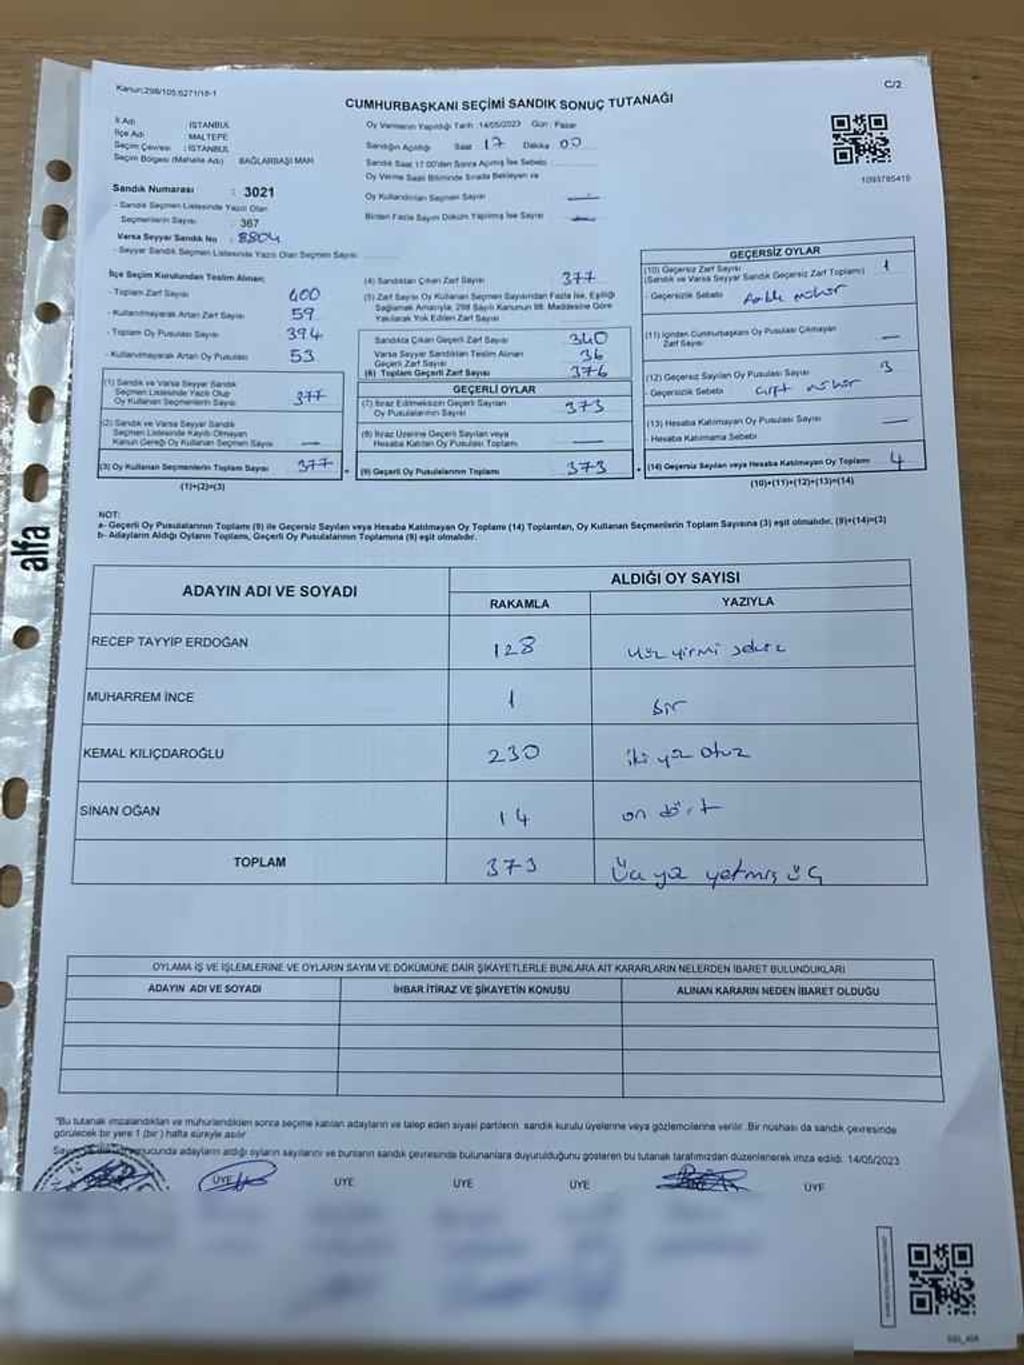 Kanun:298/105,6271/18-1
C/2
CUMHURBAŞKANI SEÇİMİ SANDIK SONUÇ TUTANAĞI
İl Adı : İSTANBUL
İlçe Adı : MALTEPE
Seçim Çevresi : İSTANBUL
Seçim Bölgesi (Mahalle Adı) BAĞLARBAŞI MAH
Oy Vermenin Yapıldığı Tarih :14/05/2023 Gün : Pazar
Sandığın Açıldığı Saat 17 Dakika 00
Sandık Saat 17:00'den Sonra Açılmış İse Sebebi
Oy Verme Saati Bitiminde Sırada Bekleyen ve
Oy Kullandırılan Seçmen Sayısı —
Birden Fazla Sayım Döküm Yapılmış İse Sayısı —
1093785410
Sandık Numarası : 3021
- Sandık Seçmen Listesinde Yazılı Olan
Seçmenlerin Sayısı : 367
Varsa Seyyar Sandık No : 8804
- Seyyar Sandık Seçmen Listesinde Yazılı Olan Seçmen Sayısı
İlçe Seçim Kurulundan Teslim Alınan:
- Toplam Zarf Sayısı 400
- Kullanılmayarak Artan Zarf Sayısı 59
- Toplam Oy Pusulası Sayısı 394
- Kullanılmayarak Artan Oy Pusulası 53
(1) Sandık ve Varsa Seyyar Sandık
Seçmen Listesinde Yazılı Olup
Oy Kullanan Seçmenlerin Sayısı 377
(2) Sandık ve Varsa Seyyar Sandık
Seçmen Listesinde Kayıtlı Olmayan
Kanun Gereği Oy Kullanan Seçmen Sayısı —
(3) Oy Kullanan Seçmenlerin Toplam Sayısı 377
(1)+(2)=(3)
(4) Sandıktan Çıkan Zarf Sayısı 377
(5) Zarf Sayısı Oy Kullanan Seçmen Sayısından Fazla İse, Eşitliği
Sağlamak Amacıyla, 298 Sayılı Kanunun 98. Maddesine Göre
Yakılarak Yok Edilen Zarf Sayısı
Sandıkta Çıkan Geçerli Zarf Sayısı 340
Varsa Seyyar Sandıktan Teslim Alınan
Geçerli Zarf Sayısı 36
(6) Toplam Geçerli Zarf Sayısı 376
GEÇERLİ OYLAR
(7) İtiraz Edilmeksizin Geçerli Sayılan
Oy Pusulalarının Sayısı 373
(8) İtiraz Üzerine Geçerli Sayılan veya
Hesaba Katılan Oy Pusulası Toplamı —
(9) Geçerli Oy Pusulalarının Toplamı 373
GEÇERSİZ OYLAR
(10) Geçersiz Zarf Sayısı
(Sandık ve Varsa Seyyar Sandık Geçersiz Zarf Toplamı) 1
- Geçersizlik Sebebi mühür
(11) İçinden Cumhurbaşkanı Oy Pusulası Çıkmayan
Zarf Sayısı —
(12) Geçersiz Sayılan Oy Pusulası Sayısı 3
- Geçersizlik Sebebi çift mühür
(13) Hesaba Katılmayan Oy Pusulası Sayısı —
- Hesaba Katılmama Sebebi
(14) Geçersiz Sayılan veya Hesaba Katılmayan Oy Toplamı 4
(10)+(11)+(12)+(13)=(14)
NOT:
a- Geçerli Oy Pusulalarının Toplamı (9) ile Geçersiz Sayılan veya Hesaba Katılmayan Oy Toplamı (14) Toplamları, Oy Kullanan Seçmenlerin Toplam Sayısına (3) eşit olmalıdır. (9)+(14)=(3)
b- Adayların Aldığı Oyların Toplamı, Geçerli Oy Pusulalarının Toplamına (9) eşit olmalıdır.
alfa
ADAYIN ADI VE SOYADI
ALDIĞI OY SAYISI
RAKAMLA YAZIYLA
RECEP TAYYİP ERDOĞAN 128 yüz yirmi sekiz
MUHARREM İNCE 1 bir
KEMAL KILIÇDAROĞLU 230 iki yüz otuz
SİNAN OĞAN 14 on dört
TOPLAM 373 Üç yüz yetmiş üç
OYLAMA İŞ VE İŞLEMLERİNE VE OYLARIN SAYIM VE DÖKÜMÜNE DAİR ŞİKAYETLERLE BUNLARA AİT KARARLARIN NELERDEN İBARET BULUNDUKLARI
ADAYIN ADI VE SOYADI İHBAR İTİRAZ VE ŞİKAYETİN KONUSU ALINAN KARARIN NEDEN İBARET OLDUĞU
"Bu tutanak imzalandıktan ve mühürlendikten sonra seçime katılan adayların ve talep eden siyasi partilerin, sandık kurulu üyelerine veya gözlemcilerine verilir. Bir nüshası da sandık çevresinde
görülecek bir yere 1 (bir) hafta süreyle asılır
adayların aldığı oyların sayılarını ve bunların sandık çevresinde bulunanlara duyurulduğunu gösteren bu tutanak tarafımızdan düzenlenerek imza edildi. 14/05/2023
ÜYE ÜYE ÜYE ÜYE ÜYE